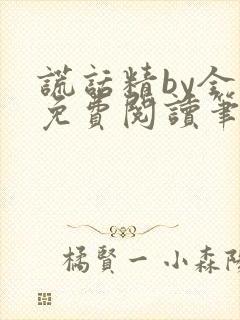 謊話精by全
免費閱讀筆
橘賢一 小森陽